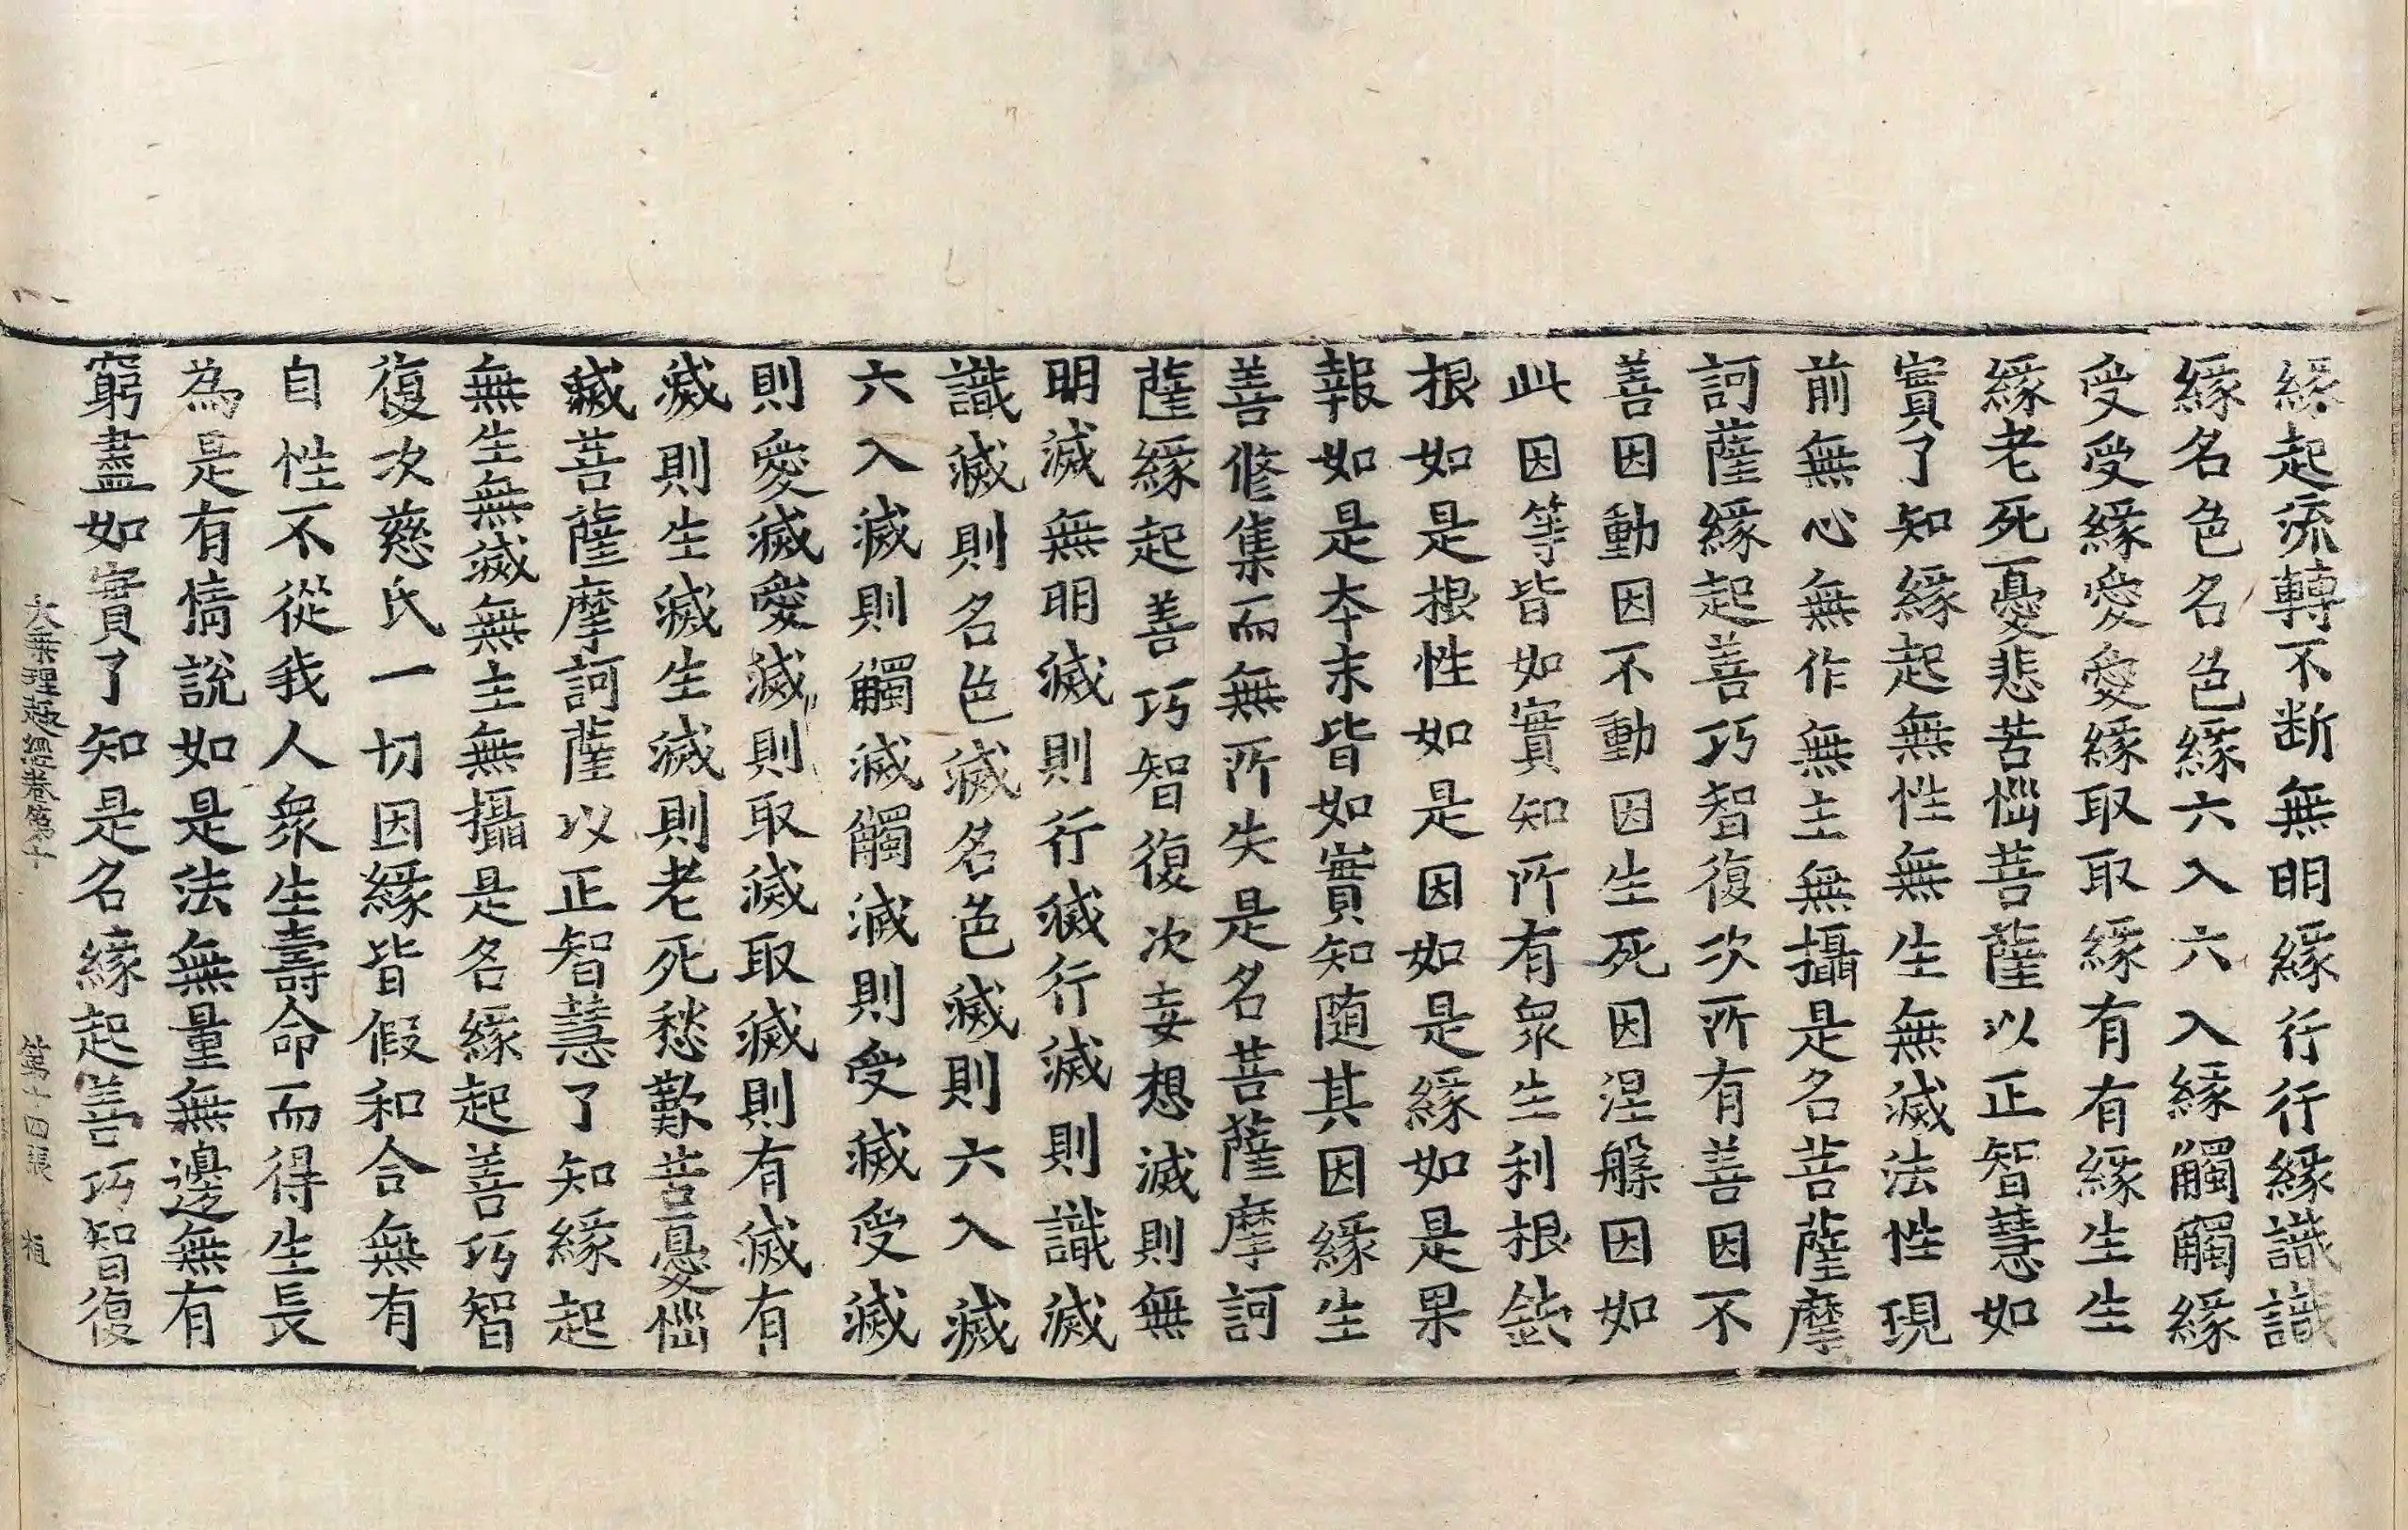 緣起流轉不断無明緣行行緣識識
緣名色名色緣六入六入緣觸觸緣
受受緣愛愛緣取取緣有有緣生生
緣老死憂悲苦惱菩薩以正智慧如
實了知緣起無性無生無滅法性現
前無心無作無主無攝是名菩薩摩
訶薩緣起善巧智復次所有善因不
善因動因不動因生死因涅槃因如
此因等皆如實知所有衆生利根鈍
根如是根性如是因如是緣如是果
報如是本末皆如實知随其因緣生
善修集而無所失是名菩薩摩訶
薩緣起善巧智復次妄想滅則無
明滅無明滅則行滅行滅則識滅
識滅則名色滅名色滅則六入滅
六入滅則觸滅觸滅則受滅受滅
則愛滅愛滅則取滅取滅則有滅有
滅則生滅生滅則老死愁歎苦憂惱
滅菩薩摩訶薩以正智慧了知緣起
無生無滅無主無攝是名緣起善巧智
復次慈氏一切因緣皆假和合無有
自性不從我人衆生壽命而得生長
為是有情說如是法無量無邊無有
窮盡如實了知是名緣起善巧智復
大乘理趣經卷第十 第十四張 植